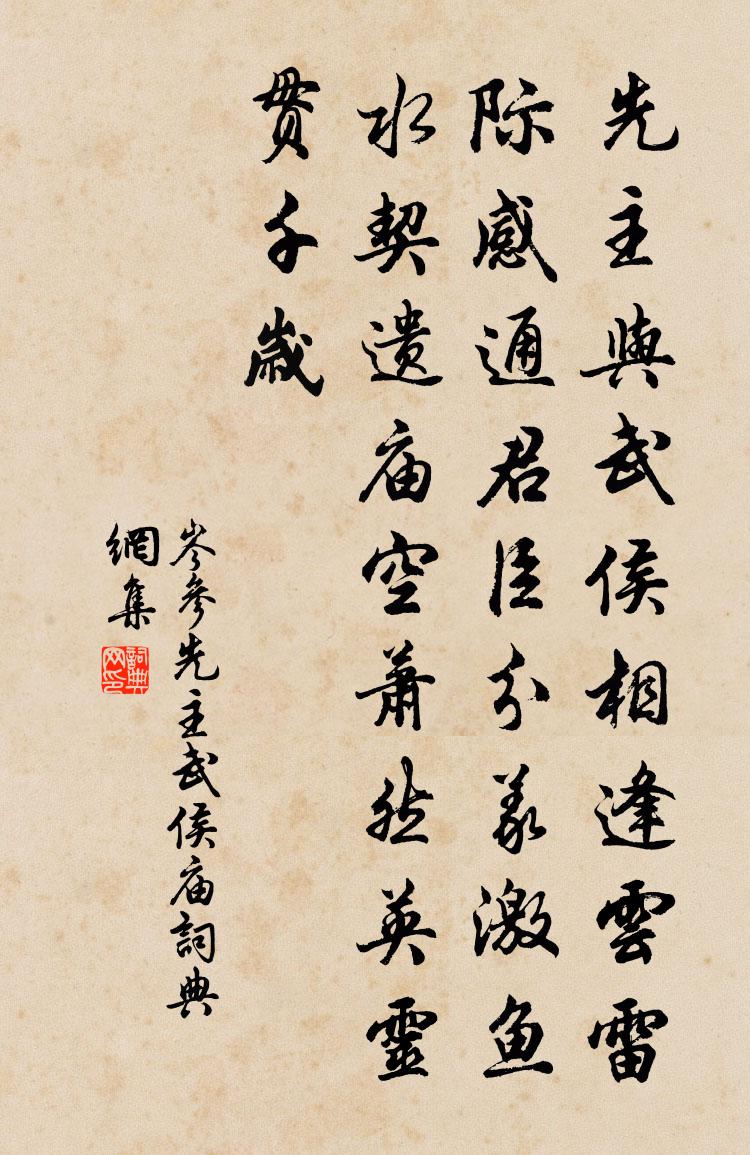 先主與武侯相逢雲雷
际感通君臣分義激魚
水契遗庙空萧然英靈
贯千歲
岑參先主武侯庙詞典
網集
詞典网印